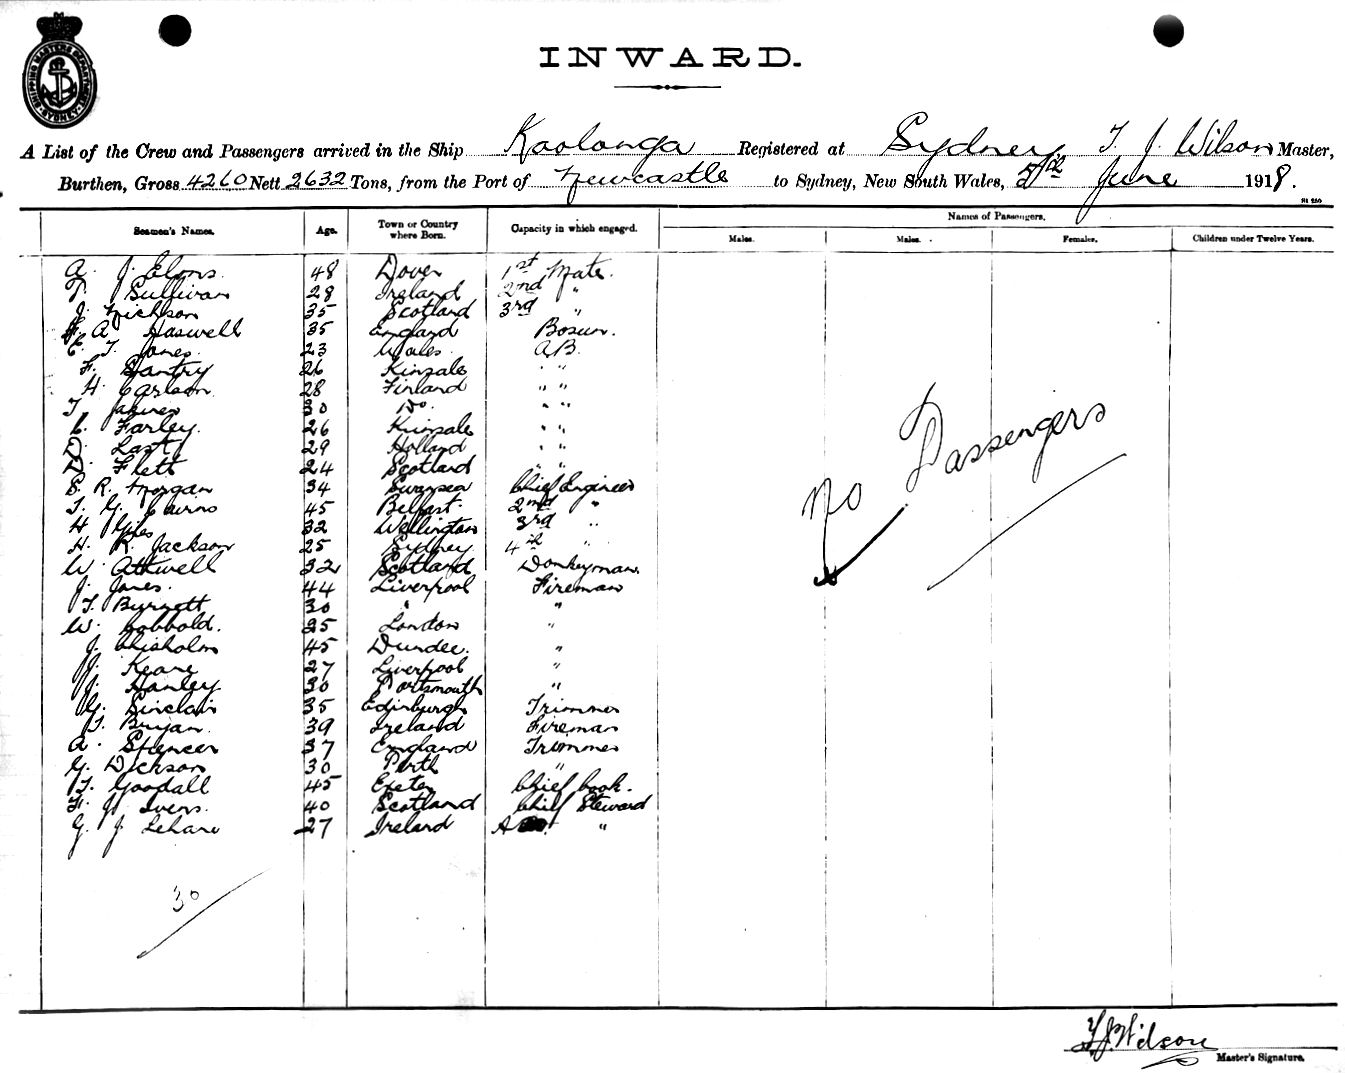 SHIPPING MASTERS DEPARTMENT SYDNEY
INWARD.
A List of the Crew and Passengers arrived in the Ship Kaolonga Registered at Sydney T. J. Wilson Master,
Burthen, Gross 4260 Nett 2632 Tons, from the Port of Newcastle to Sydney, New South Wales, June 1918.
Seamen's Names. Age. Town or Country where Born. Capacity in which engaged. Names of Passengers.
Males. Males. Females. Children under Twelve Years.
A. J. 48 Dover 1st Mate.
Sullivan 28 Ireland 2nd "
J. 35 Scotland 3rd "
A Haswell 35 England Bosun.
T. Jones. 23 Wales. A.B.
F. Santry 26 Kinsale " "
H. Carlson. 28 Finland " "
T. 30 Do. " "
C. Farley. 26 Kinsale " "
D. Last 29 Holland " "
D. Flett 24 Scotland " "
S. R. Morgan 34 Swansea Chief Engineer
T. G. Cairns 45 Belfast. 2nd "
H Giles 32 Wellington 3rd "
H. R. Jackson 25 Sydney 4th "
W. Attwell 32 Scotland Donkeyman.
J. Jones. 44 Liverpool Fireman
T. Burnett 30 " "
W. Cobbold. 25 London "
J. Chisholm 45 Dundee. "
J. Keane 27 Liverpool "
J. Hanley 30 Portsmouth "
G. Sinclair 35 Edinburgh Trimmer
T. Bryan. 39 Ireland Fireman
A. Spencer 37 England Trimmer
G. Dickson 30 Perth "
T. Goodall 45 Exeter Chief Cook.
F. J. Ivers. 40 Scotland Chief Steward
G. J. Lehane 27 Ireland A "
No Passengers
30
T. J. Wilson
Master's Signature.